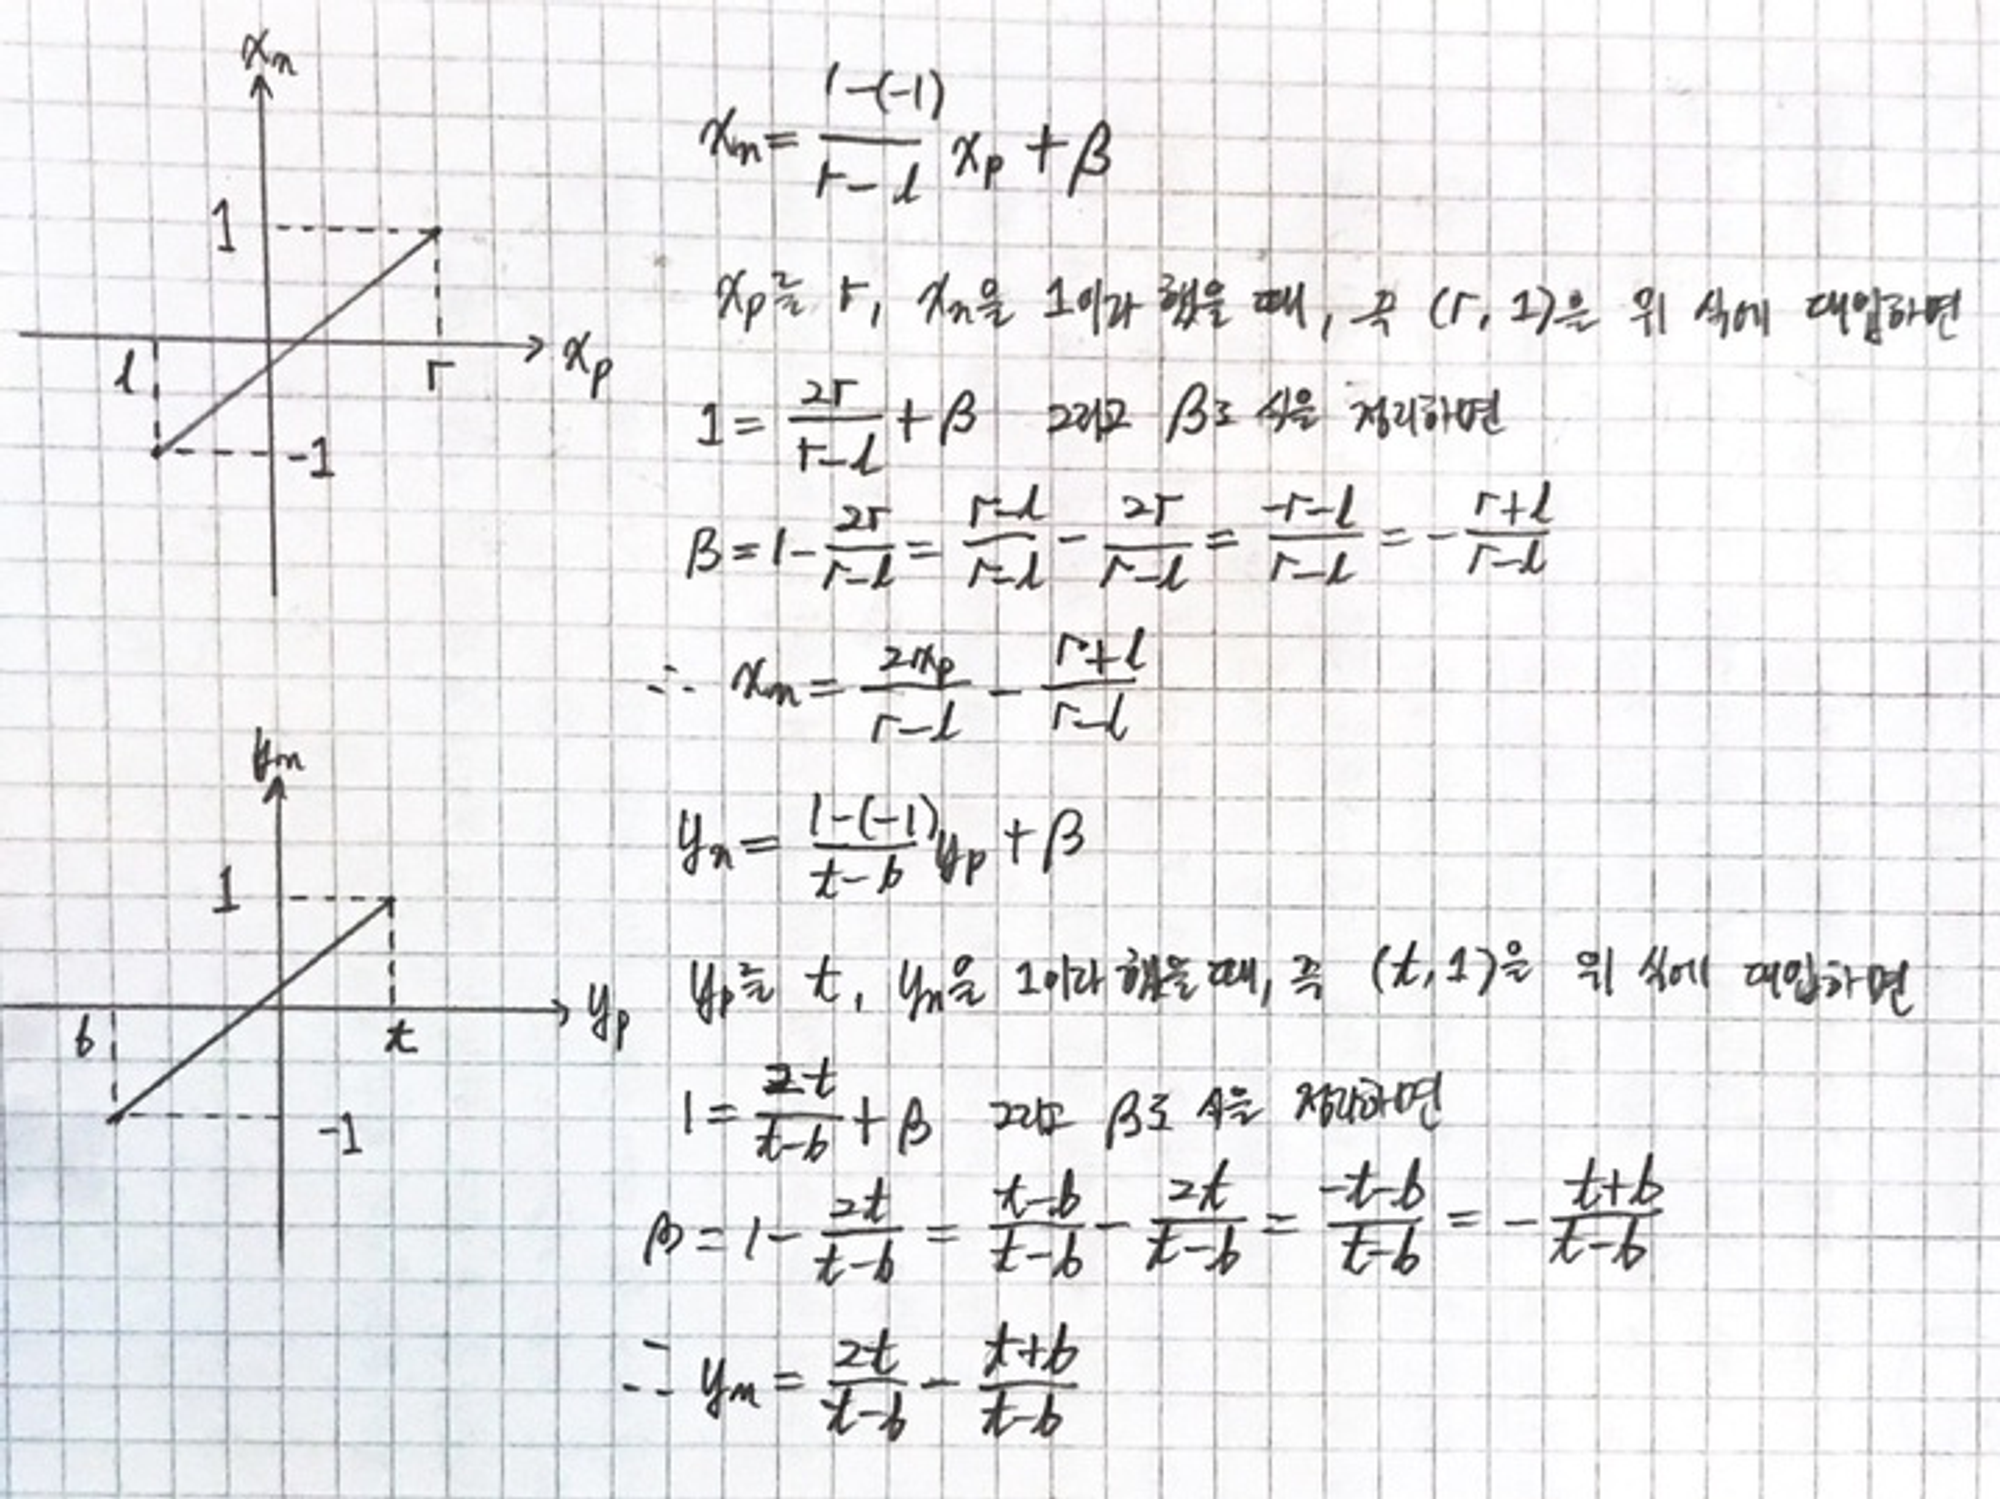 xₙ
1
l
r
xₚ
-1
xₙ = (1-(-1))/(r-l) xₚ + β
xₚ를 r, xₙ을 1이라 했을 때, 즉 (r, 1)을 위 식에 대입하면
1 = 2r/(r-l) + β 그리고 β로 식을 정리하면
β = 1 - 2r/(r-l) = (r-l)/(r-l) - 2r/(r-l) = (-r-l)/(r-l) = - (r+l)/(r-l)
∴ xₙ = 2xₚ/(r-l) - (r+l)/(r-l)
yₙ
1
b
t
yₚ
-1
yₙ = (1-(-1))/(t-b) yₚ + β
yₚ를 t, yₙ을 1이라 했을 때, 즉 (t, 1)을 위 식에 대입하면
1 = 2t/(t-b) + β 그리고 β로 식을 정리하면
β = 1 - 2t/(t-b) = (t-b)/(t-b) - 2t/(t-b) = (-t-b)/(t-b) = - (t+b)/(t-b)
∴ yₙ = 2t/(t-b) - (t+b)/(t-b)